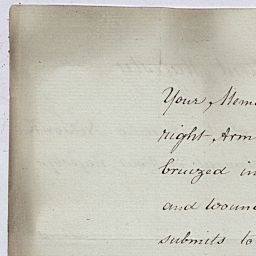 Your Mem
right Arm
bruized in
and wound
submits to